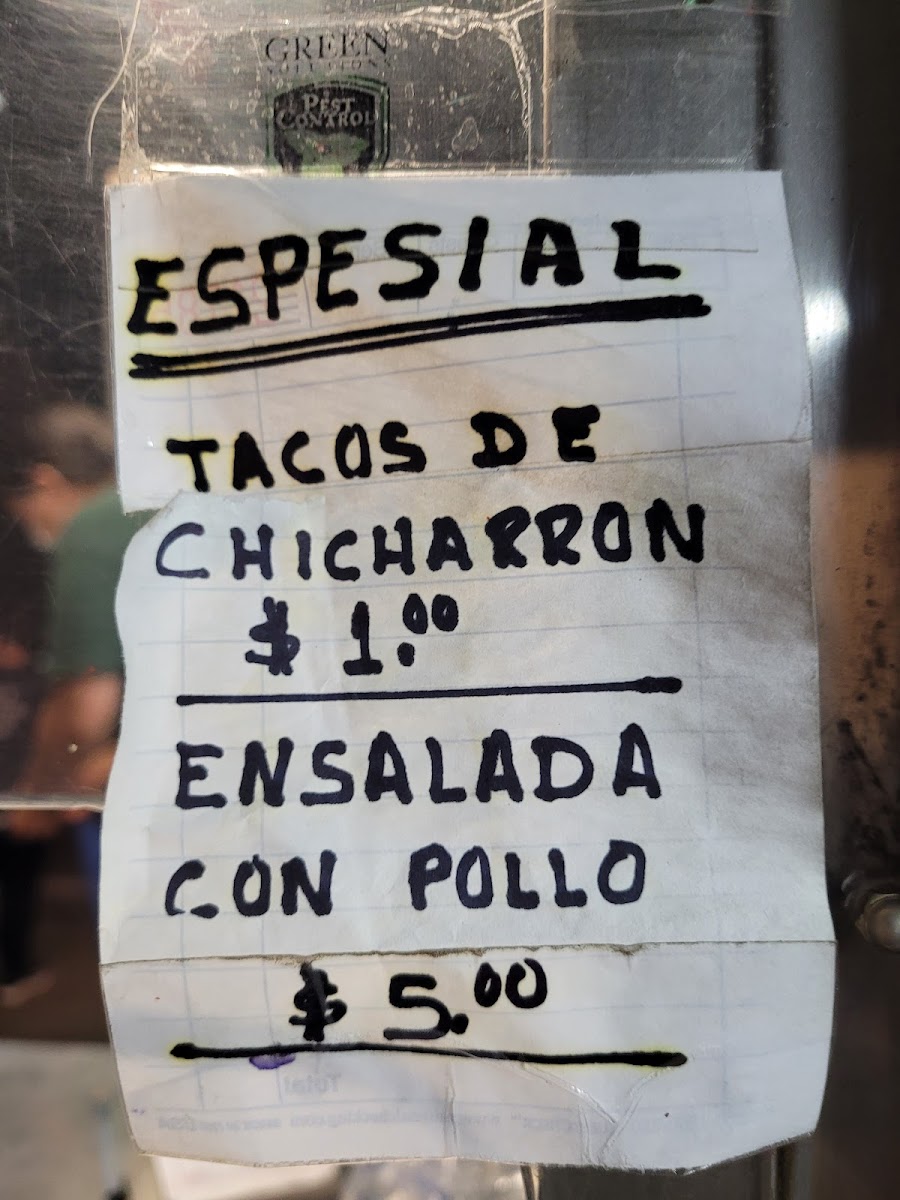 GREEN
PEST
CONTROL
ESPESIAL
TACOS DE
CHICHARRON
$ 1.00
ENSALADA
CON POLLO
$ 5.00
Total